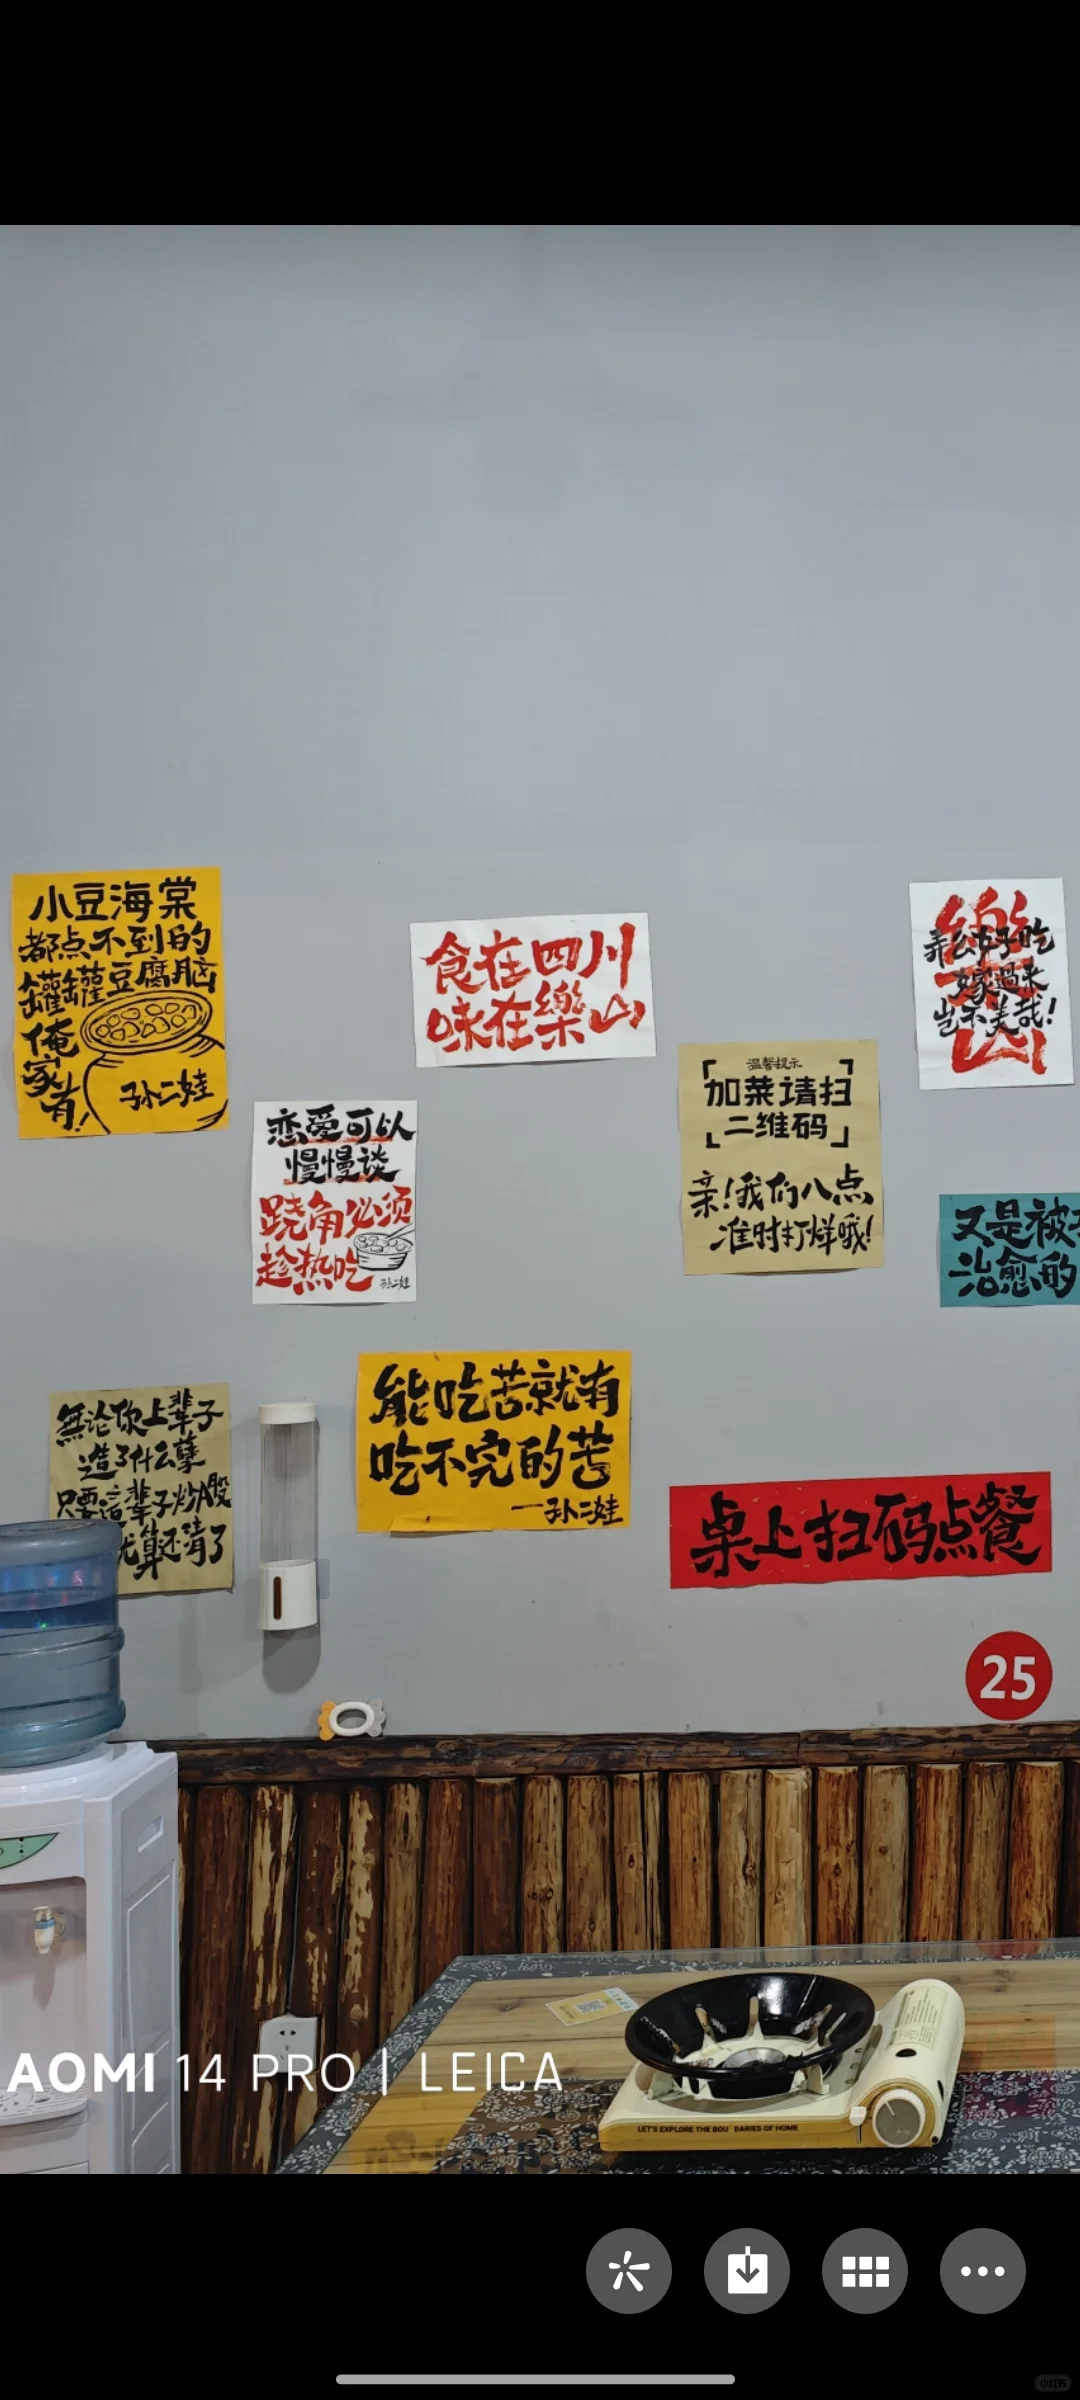 小豆海棠
都点不到的
罐罐豆腐脑
俺
家
有!
孙二娃
食在四川
味在樂山
樂
山
弄么好吃
嫁過来
岂不美哉!
恋爱可以
慢慢谈
跷角必须
趁热吃
孙二娃
温馨提示
「加菜请扫
二维码」
亲!我们八点
准时打烊哦!
又是被
治愈的
無论你上辈子
造了什么孽
只要這辈子炒A股
就算还清了
能吃苦就有
吃不完的苦
一孙二娃
桌上扫码点餐
25
AOMI 14 PRO | LEICA
LET'S EXPLORE THE BOU DARIES OF HOME
小红书